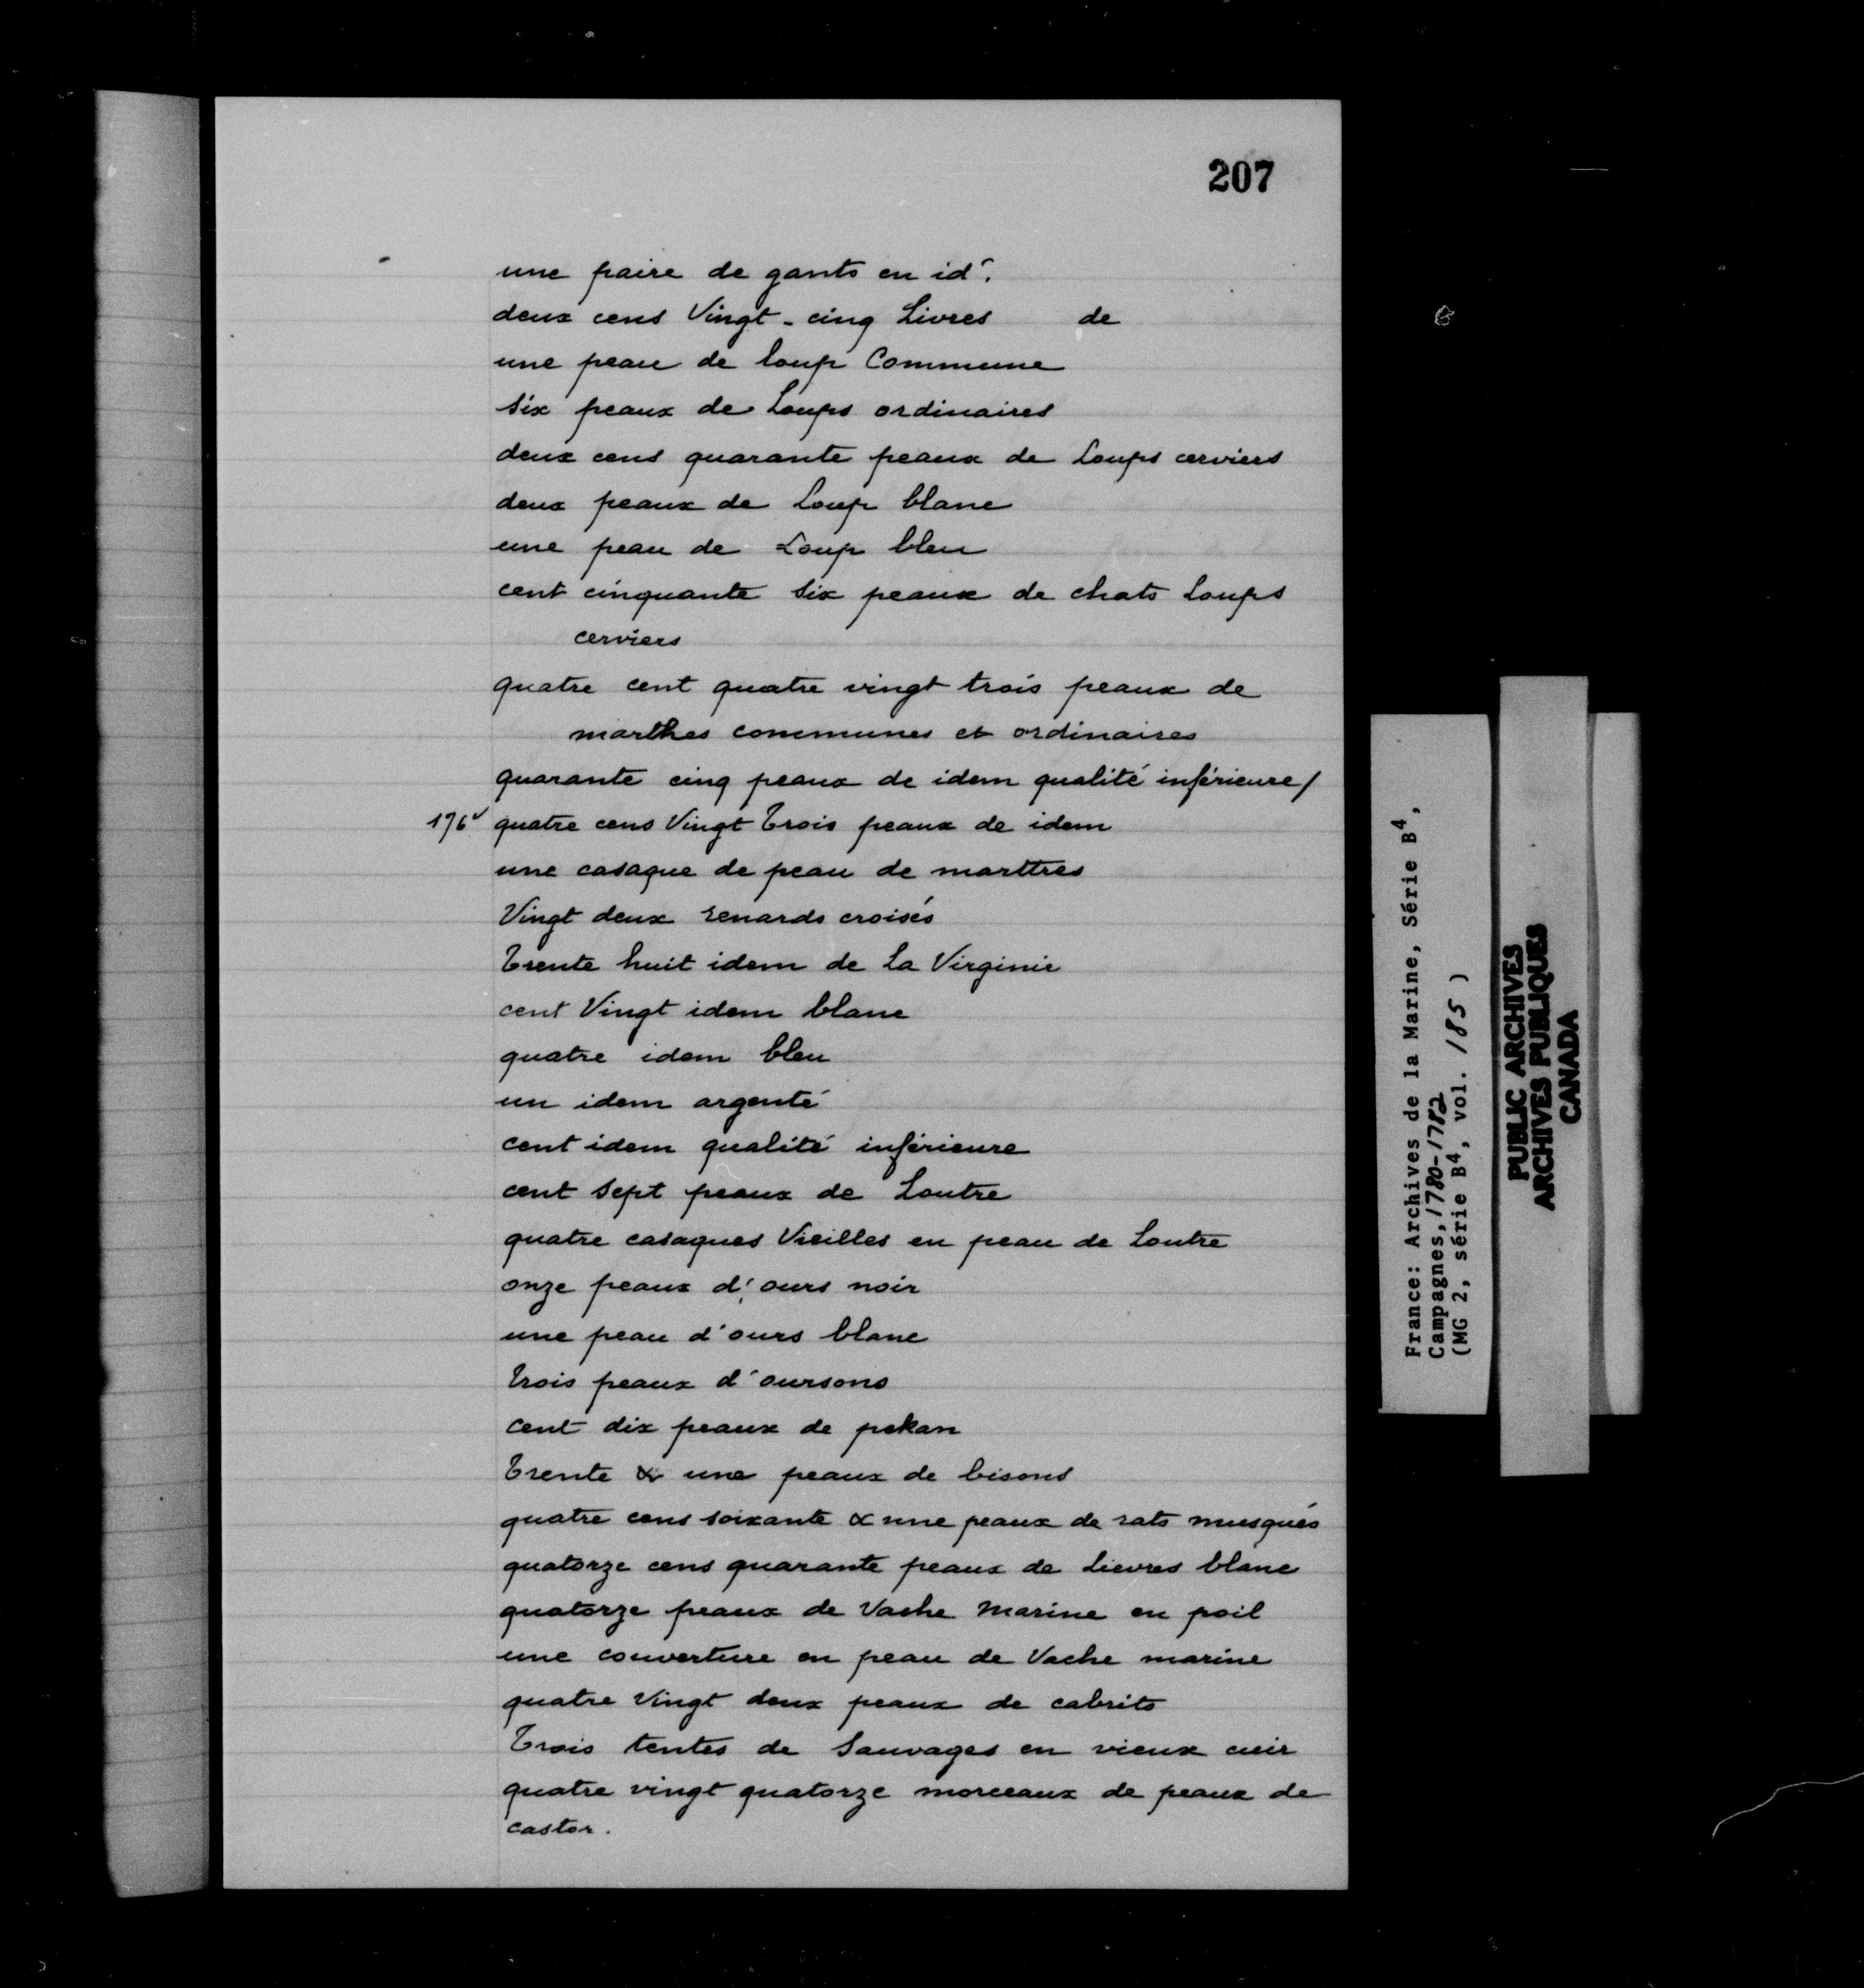 207
une paire de gants en id.
deux cens Vingt-cinq Livres de
une peau de loup Commune
six peaux de Loups ordinaires
deux cens quarante peaux de Loups cerviers
deux peaux de Loup blanc
une peau de Loup bleu
cent cinquante Six peaux de chats Loups
cerviers
quatre cent quatre vingt trois peaux de
marthes communes et ordinaires
quarante cinq peaux de idem qualité inférieure/
176v quatre cens Vingt Trois peaux de idem
une casaque de peau de marttres
Vingt deux renards croisés
Trente huit idem de La Virginie
cent Vingt idem blanc
quatre idem bleu
un idem argenté
cent idem qualité inférieure
cent Sept peaux de Loutre
quatre casaques Vieilles en peau de Loutre
onze peaux d'ours noir
une peau d'ours blanc
Trois peaux d'oursons
cent dix peaux de pekan
Trente & une peaux de bisons
quatre cens soixante & une peaux de rats musqués
quatorze cens quarante peaux de Lievres blanc
quatorze peaux de Vache Marine en poil
une couverture en peau de Vache marine
quatre Vingt deux peaux de cabrits
Trois tentes de Sauvages en vieux cuir
quatre vingt quatorze morceaux de peaux de
castor.
France: Archives de la Marine, Série B4,
Campagnes, 1780-1782
(MG 2, série B4, vol. 185)
PUBLIC ARCHIVES
ARCHIVES PUBLIQUES
CANADA